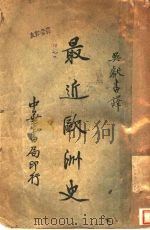 吳獻書譯
最近歐洲史
中華書局印行